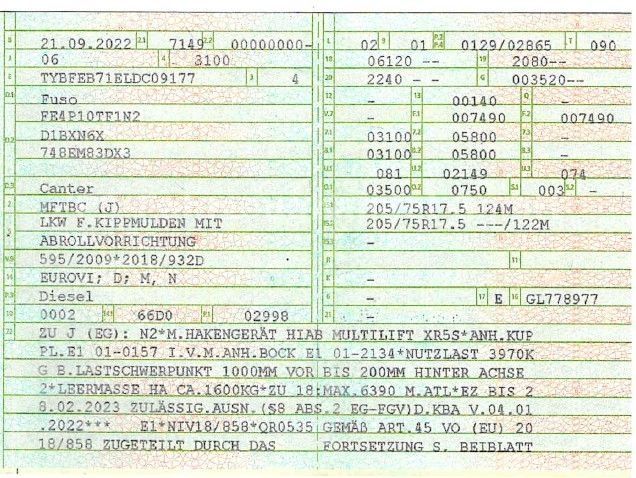 B 21.09.2022 2.1 7149 2.2 00000000- L 02 9 01 P.2 P.4 0129/02865 T 090
J 06 4 3100 18 06120 -- 19 2080--
E TYBFEB71ELDC09177 3 4 20 2240 -- G 003520--
D.1 Fuso 12 - 13 00140 Q -
FE4P10TF1N2 V.7 - F.1 007490 F.2 007490
D.2 D1BXN6X 7.1 03100 7.2 05800 7.3 -
748EM83DX3 8.1 03100 8.2 05800 8.3 -
U.1 081 U.2 02149 U.3 074
D.3 Canter O.1 03500 O.2 0750 S.1 003 S.2 -
2 MFTBC (J) 15.1 205/75R17.5 124M
5 LKW F.KIPPMULDEN MIT 15.2 205/75R17.5 ---/122M
ABROLLVORRICHTUNG 15.3 -
V.9 595/2009*2018/932D R - 11
14 EUROVI; D; M, N K -
P.3 Diesel 6 - 17 E 16 GL778977
10 0002 14.1 66D0 P.1 02998 21 -
22 ZU J (EG): N2*M.HAKENGERÄT HIAB MULTILIFT XR5S*ANH.KUP
PL.E1 01-0157 I.V.M.ANH.BOCK E1 01-2134*NUTZLAST 3970K
G B.LASTSCHWERPUNKT 1000MM VOR BIS 200MM HINTER ACHSE
2*LEERMASSE HA CA.1600KG*ZU 18:MAX.6390 M.ATL*EZ BIS 2
8.02.2023 ZULÄSSIG.AUSN.(§8 ABS.2 EG-FGV)D.KBA V.04.01
.2022*** E1*NIV18/858*QR0535 GEMÄß ART.45 VO (EU) 20
18/858 ZUGETEILT DURCH DAS FORTSETZUNG S. BEIBLATT